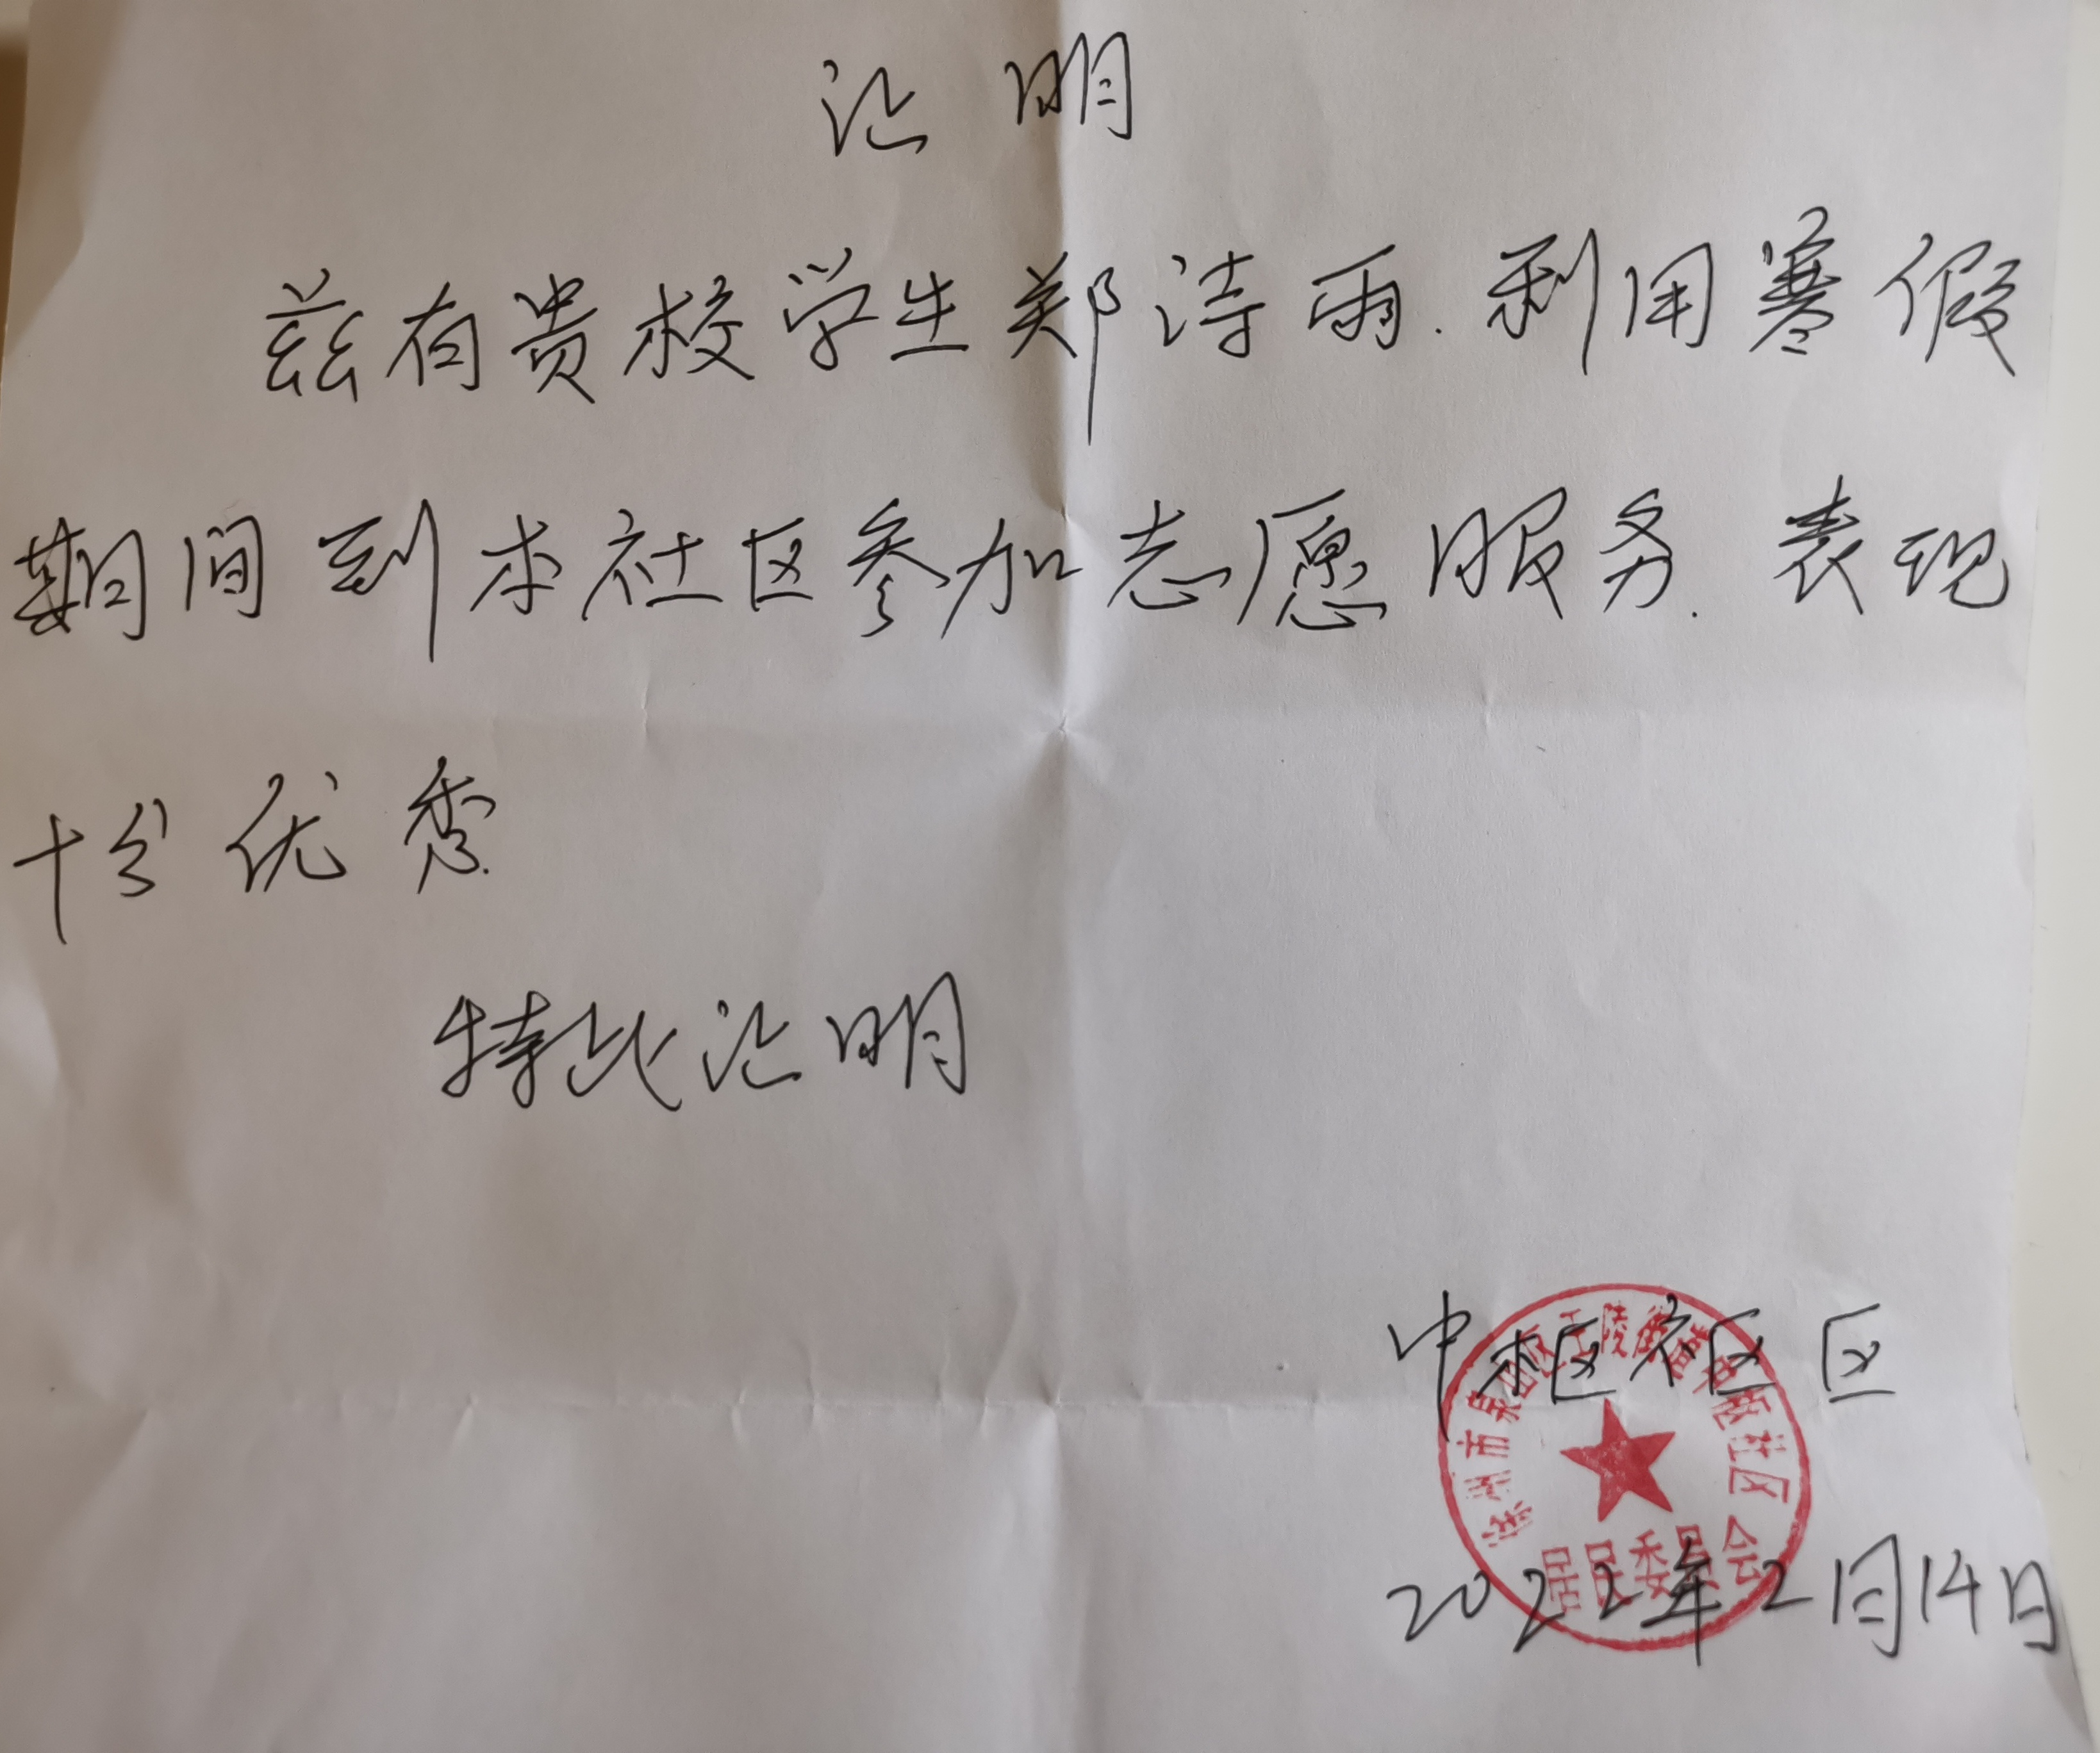 证明
兹有贵校学生郑诗雨.利用寒假
期间到本社区参加志愿服务.表现
十分优秀.
特此证明
中枢社区
徐州市泉山区王陵街道中枢社区
居民委员会
2022年2月14日